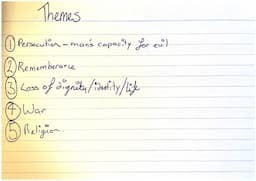 Themes
① Persecution - man's capacity for evil
② Rememberance
③ Loss of dignity/identity/life
④ War
⑤ Religion.